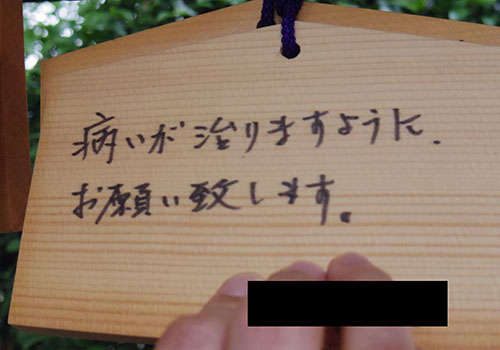 病いが治りますように、
お願い致します。